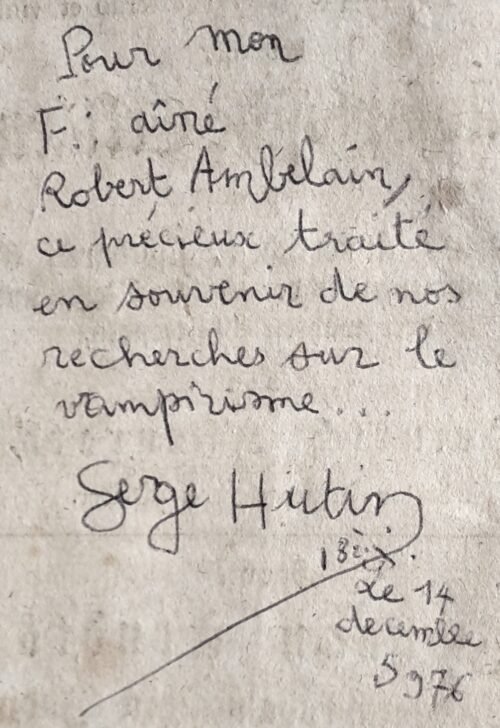 Pour mon
F∴ aîné
Robert Ambelain,
ce précieux traité
en souvenir de nos
recherches sur le
vampirisme...
Serge Hutin
Le 14
décembre
5976